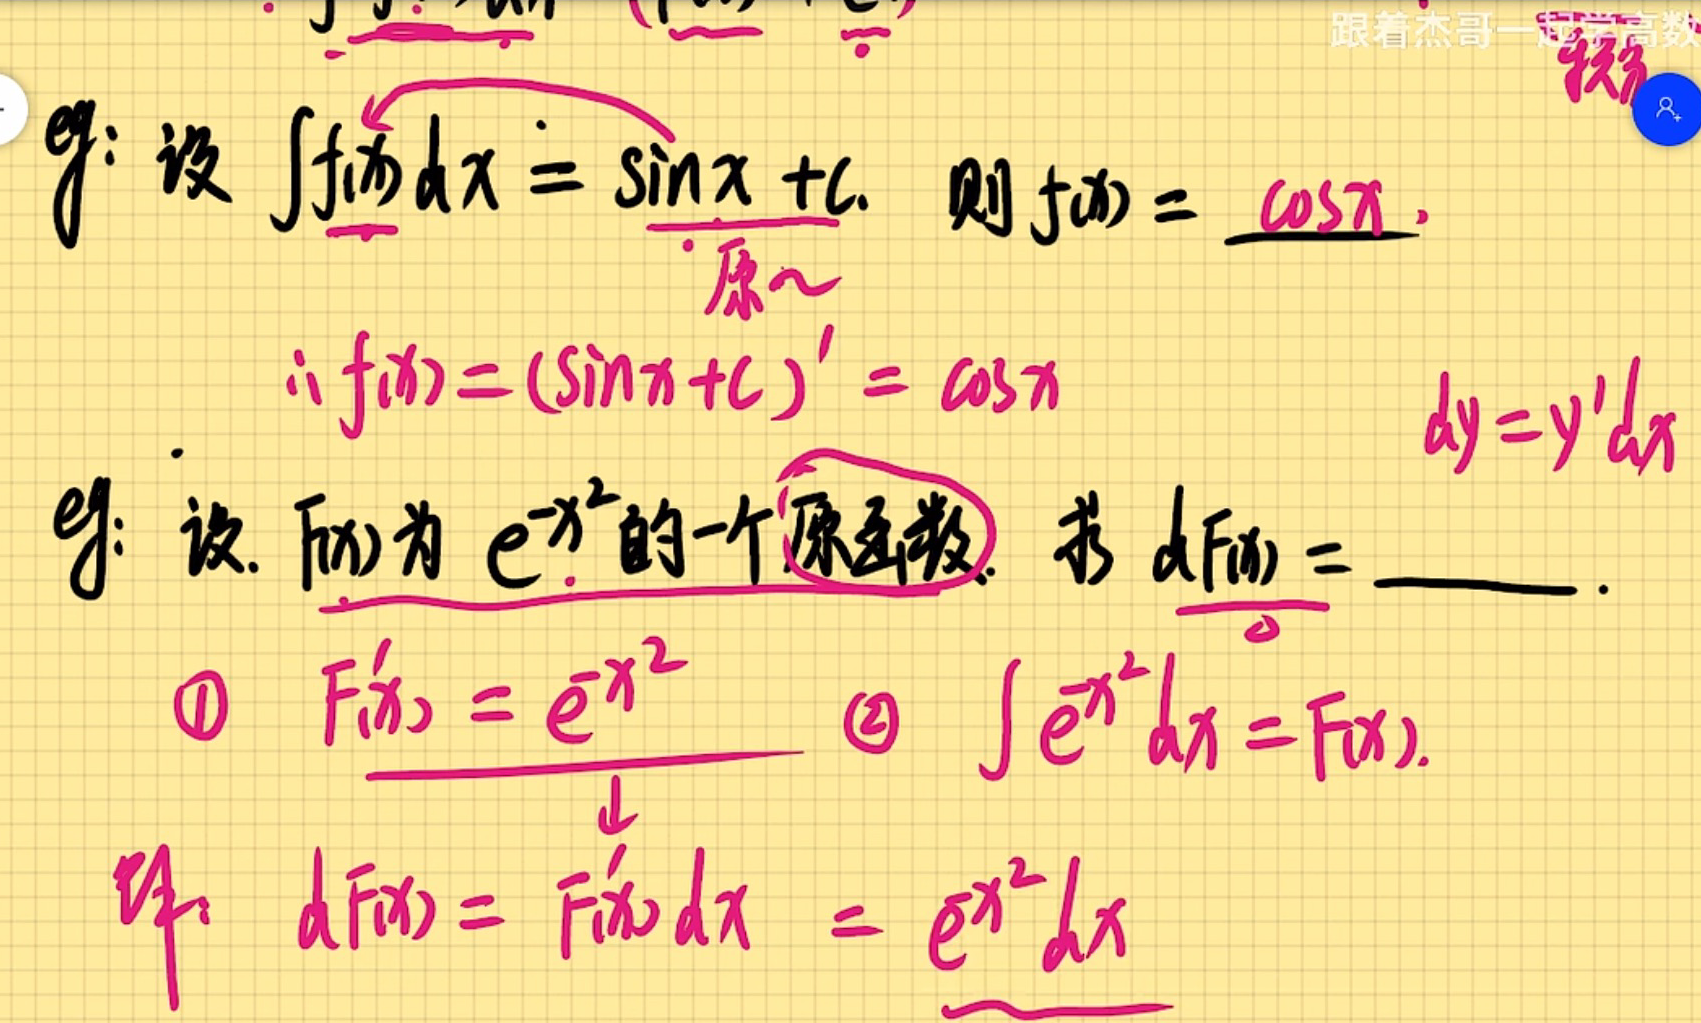 跟着杰哥一起学高数
eg: 设 ∫f(x)dx = sinx + C. 则 f(x) = cosx.
原~
∴ f(x) = (sinx + C)' = cosx
dy = y'dx
eg: 设. F(x) 为 e^{-x²} 的一个原函数. 求 dF(x) = ______.
① F'(x) = e^{-x²} ② ∫e^{-x²}dx = F(x).
解: dF(x) = F'(x)dx = e^{-x²}dx